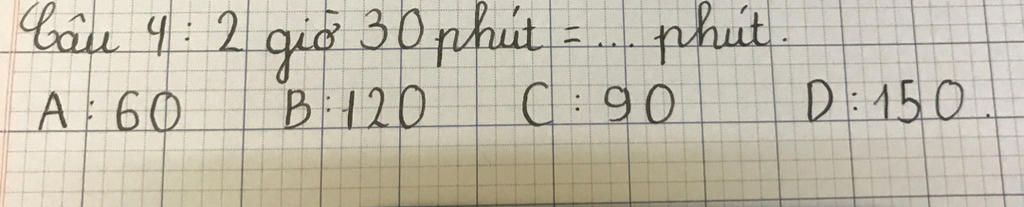 Câu 4 : 2 giờ 30 phút = ... phút.
A : 60 B : 120 C : 90 D : 150.